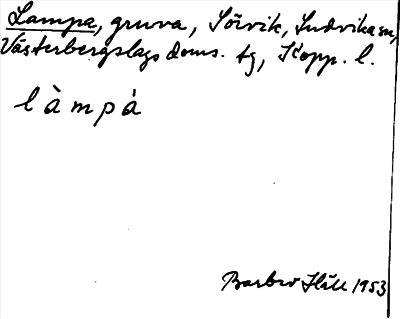 Lampa, gruva, Sörvik, Ludvika sn,
Västerbergslags doms. tg, Kopp. l.
làmpà
Barbro Häll 1953